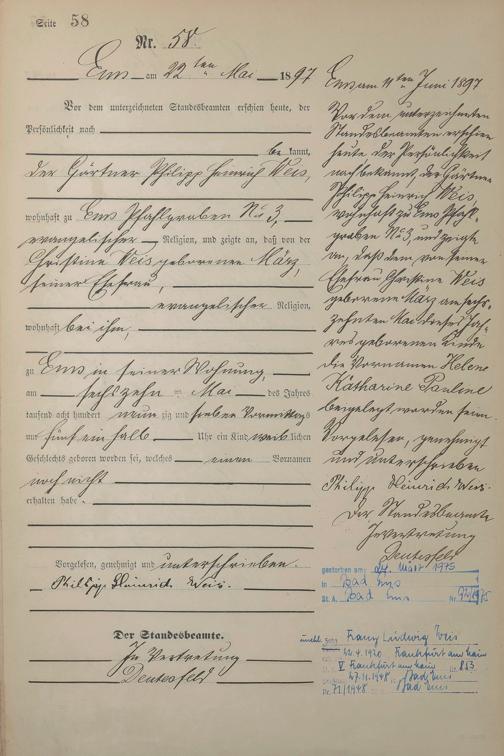 Seite 58
Nr. 58.
Ems am 22ten Mai 1897
Vor dem unterzeichneten Standesbeamten erschien heute, der
Persönlichkeit nach
be kannt,
der Gärtner Philipp Heinrich Weis,
wohnhaft zu Ems Pfahlgraben No 3,
evangelischer Religion, und zeigte an, daß von der
Christine Weis geborenen März,
seiner Ehefrau,
evangelischer Religion,
wohnhaft bei ihm,
zu Ems in seiner Wohnung,
am sechszehn ten Mai des Jahres
tausend acht hundert neun zig und sieben Vormittags
um fünf ein halb Uhr ein Kind weib lichen
Geschlechts geboren worden sei, welches einen Vornamen
noch nicht
erhalten habe
Vorgelesen, genehmigt und unterschrieben.
Philipp Heinrich Weis.
Der Standesbeamte.
In Vertretung
Deutesfeld
Ems am 11ten Juni 1897
Vor dem unterzeichneten
Standesbeamten erschien
heute der Persönlichkeit
nach bekannt, der Gärtner
Philipp Heinrich Weis,
wohnhaft zu Ems Pfahl-
graben No 3, und zeigte
an, daß dem von seiner
Ehefrau Christine Weis
geborene März am sechs-
zehnten Mai dieses Jah-
res geborenen Kinde
die Vornamen Helene
Katharine Pauline
beigelegt worden seien.
Vorgelesen, genehmigt
und unterschrieben
Philipp Heinrich Weis.
Der Standesbeamte
In Vertretung
Deutesfeld
gestorben am: 24. März 1975
in Bad Ems
St. A. Bad Ems Nr. 92/1975
unehl. Sohn Franz Ludwig Weis
22.4.1920 Frankfurt am Main
V Frankfurt am Main Nr. 853
27.11.1948 Bad Ems
Nr. 72/1948 Bad Ems